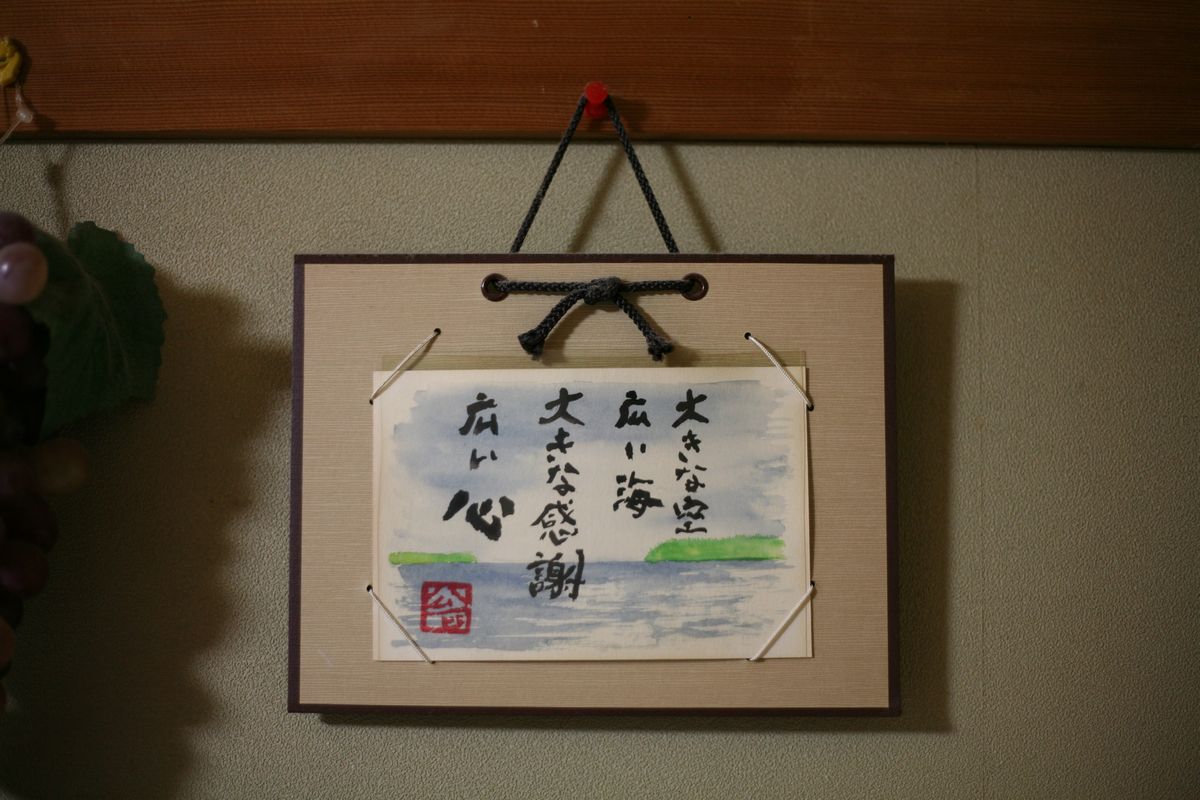 大きな空
広い海
大きな感謝
広い心